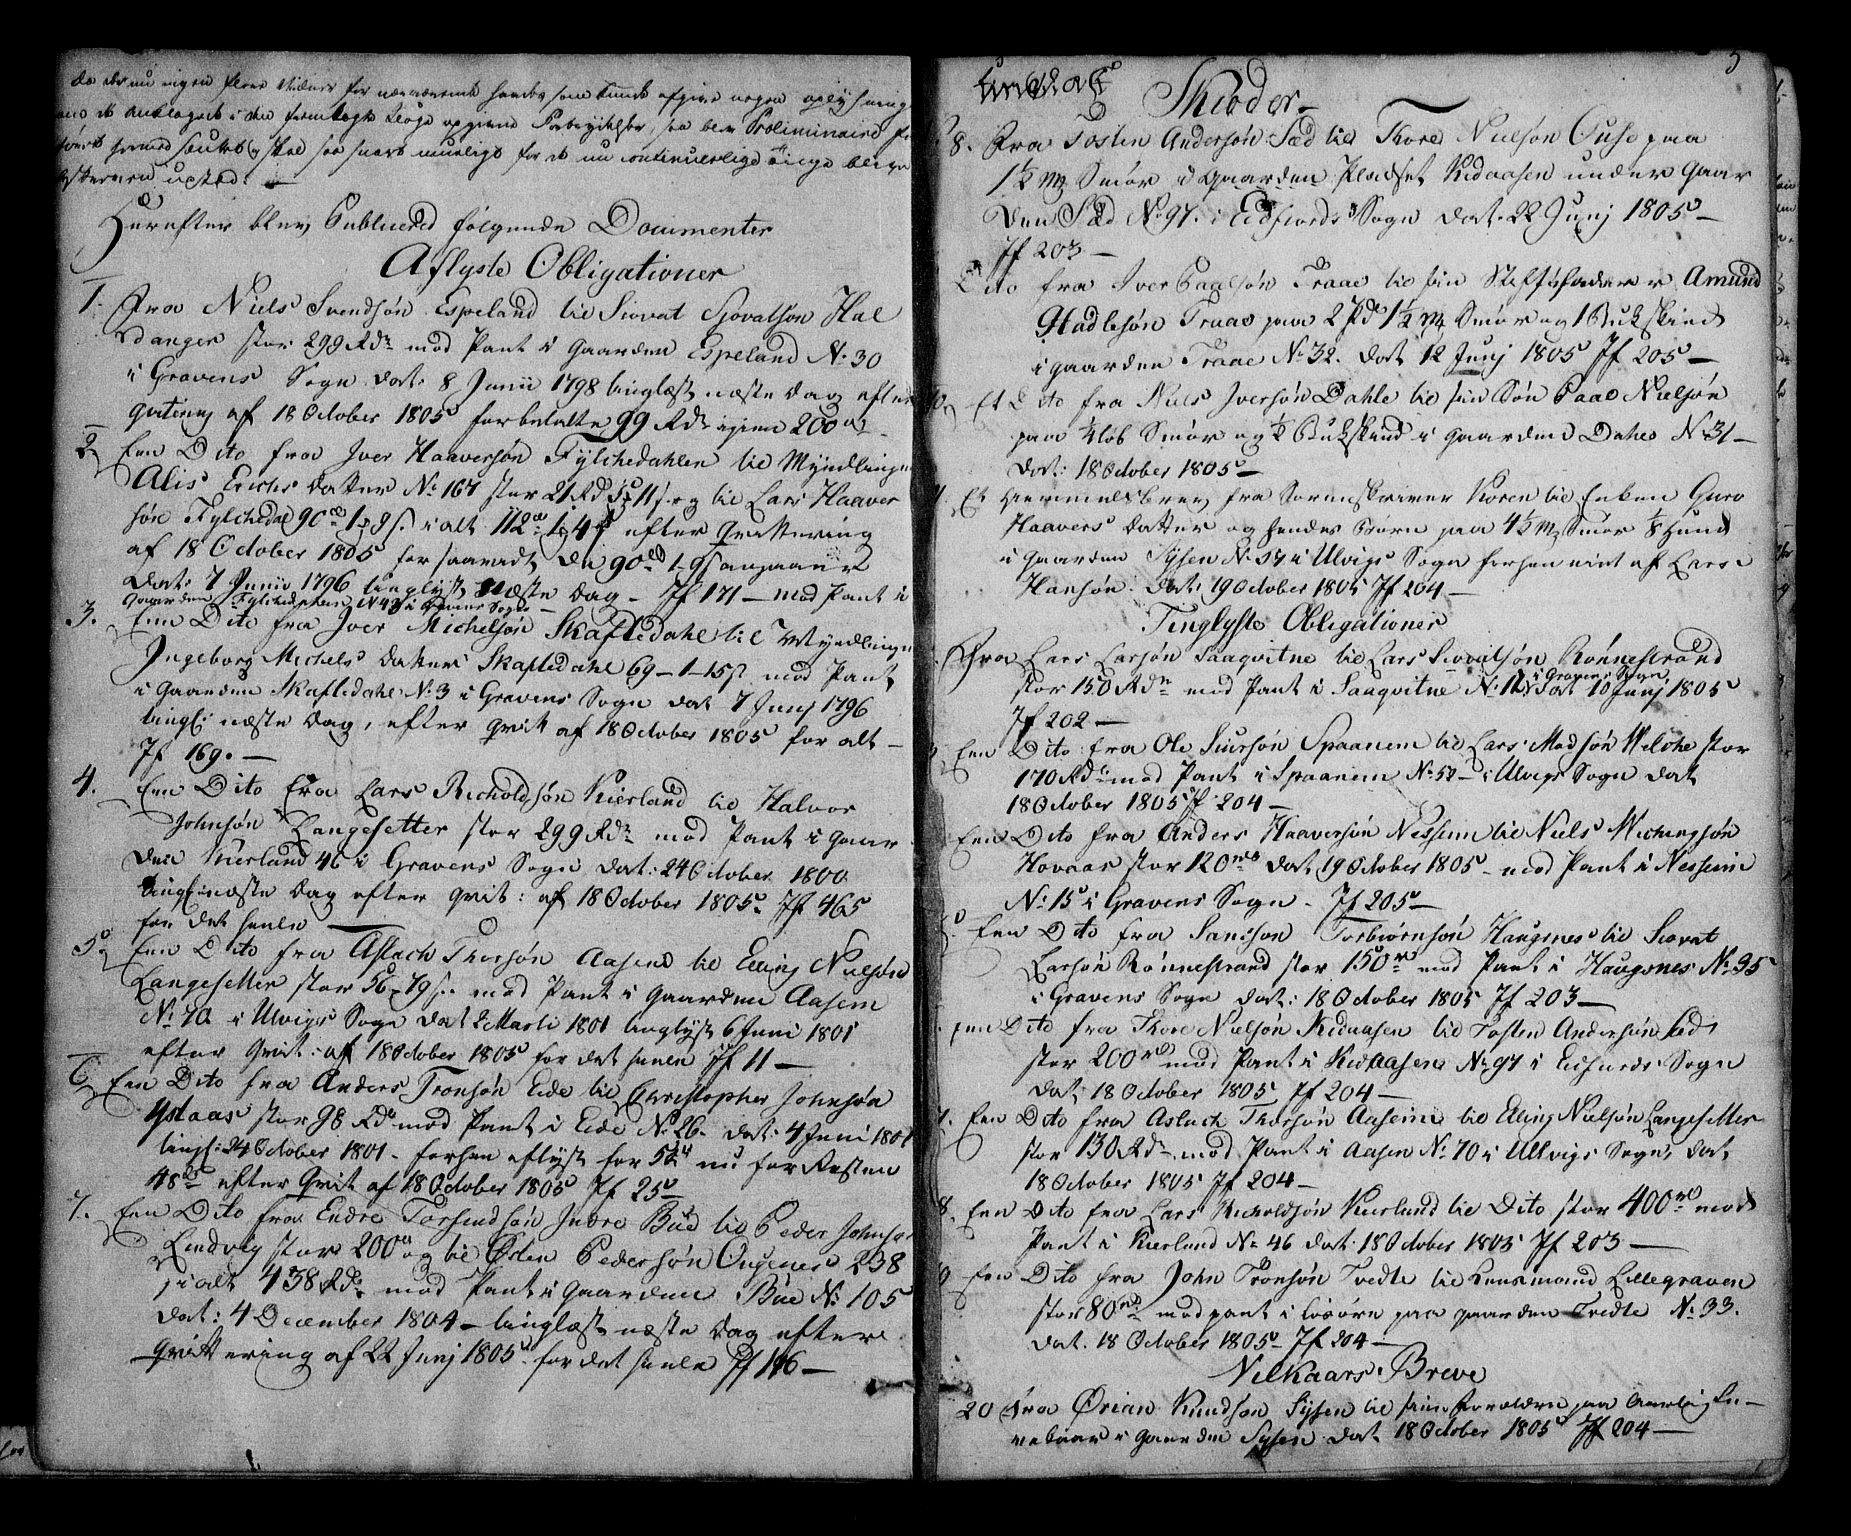 da der nu ingen flere Vidner for nærværende havdes som kunde afgive nogen oplysning
Herefter blev Publicered følgende Documenter
Aflyste Obligationer
1. Fra Niels Svendsøn Espeland til Siovat Siovatsøn Hal
danger stor 299 Rdr med Pant i Gaarden Espeland No 30
i Gravens Sogn dat: 8 Junii 1798 tinglæst næste Dag efter
qvitering af 18 October 1805 forbetalte 99 Rdr igien 200 rd
2. Een Dito fra Iver Haaversøn Fylchedahlen til Myndlingen
Alis Erichs datter No 167 stor 21 Rd 11 s og til Lars Haaver
søn Fylchedal 90 rd 1 9 s i alt 112 rd 1 4 s efter Qvittering
af 18 October 1805 forsaavidt de 90 rd 1 9 s angaaer
dat: 7 Junii 1796 tinglyst næste Dag - Jf 171 - med Pant i
Gaarden Fylchedahlen No 48 i Gravens Sogn -
3. Een Dito fra Iver Michelsøn Skafledahl til Myndlingen
Ingeborg Michels datter Skafledahl 69 - 1 - 15 s med Pant
i Gaarden Skafledahl No 3 i Gravens Sogn dat 7 Junj 1796
tingl: næste Dag, efter qvit af 18 October 1805 for alt -
Jf 169. -
4. Een Dito fra Lars Richoldsøn Kierland til Halvor
Johnsøn Langesetter stor 299 Rdr med Pant i Gaar
den Kierland 46 i Gravens Sogn dat: 24 October 1800
tingl: næste Dag efter qvit: af 18 October 1805 Jf 465
for det heele -
5. Een Dito fra Aslach Thorsøn Aasen til Elling Nielsøn
Langesetter stor 56 - 79 s. med Pant i Gaarden Aasen
No 70 i Ulvigs Sogn dat 2 Marti 1801 tinglyst 6 Juni 1801
efter Qvit: af 18 October 1805 for det heele Jf 11 -
6. Een Dito fra Anders Tronsøn Eide til Christopher Johnsøn
Ystaas stor 98 Rdr med Pant i Eide No 26. dat: 4 Juni 1801
tingl: 24 October 1801 - forhen aflyst for 50 rd nu for Resten
48 rd efter Qvit af 18 October 1805 Jf 25 -
7. Een Dito fra Endre Torfindsøn Indre Bue til Peder Johnsøn
Lindvig stor 200 rd og til Østen Pedersøn Ougenes 238
i alt 438 Rdr med Pant i Gaarden Bue No 105
dat: 4 December 1804 - tinglæst næste Dag efter
qvittering af 22 Junj 1805 for det heele Jf 116 -
5
Skiøder -
8. Fra Tosten Andersøn Sæd til Thore Nielsøn Ouse paa
1½ Mk Smør i gaarden Pladset Kidaasen under Gaar
den Sæd No 97. i Eidfiords Sogn dat. 22 Junj 1805 -
Jf 203 -
Dito fra Iver Paalsøn Traae til sin Stiffader Amund
Hadlesøn Traae paa 2 Pd 1½ Mk Smør og 1 Bukskind
i gaarden Traae No 32. dat 12 Junj 1805 Jf 205 -
10. Et Dito fra Niels Iversøn Dahle til sin Søn Paal Nielsøn
paa ¼ Løb Smør og ½ Bukskind i gaarden Dahle No 31 -
dat: 18 October 1805 -
Et Hiemmelsbrev fra Sorenskriver Koren til Enken Guro
Haavers datter og hendes Børn paa 4½ Mk Smør ⅛ Hund
i gaarden Sysen No 54 i Ulvigs Sogn forhen eiet af Lars
Hansøn. dat: 19 October 1805 Jf 204 -
Tinglyste Obligationer
Fra Lars Larsøn Saaqvitne til Lars Siovatsøn Rønnestrand
stor 150 Rdr med Pant i Saaqvitne No 12 i Gravens Sogn dat 10 Junj 1805
Jf 202 -
Een Dito fra Ole Siursøn Spaanem til Lars Madsøn Velche stor
170 Rdr med Pant i Spaanem No 52 - i Ulvigs Sogn dat
18 October 1805 Jf 204 -
Een Dito fra Anders Haaversøn Nesheim til Niels Michingsøn
Hovaas stor 120 rd dat 19 October 1805 - med Pant i Nesheim
No 15 i Gravens Sogn - Jf 205 -
Een Dito fra Samson Torbiørnsøn Haugsnes til Siovat
Larsøn Rønnestrand stor 150 rd med Pant i Haugsnes No 95
i Gravens Sogn dat: 18 October 1805 Jf 203 -
Een Dito fra Thore Nielsøn Kidaasen til Tosten Andersøn Sæd
stor 200 rd med Pant i Kidaasen No 97 i Eidfiords Sogn
dat: 18 October 1805 Jf 204 -
7. Een Dito fra Aslach Thorsøn Aasen til Elling Nielsøn Langesetter
stor 130 Rdr med Pant i Aasen No 70 i Ulvigs Sogn, dat.
18 October 1805 Jf 204 -
8. Een Dito fra Lars Richoldsøn Kierland til Dito stor 400 rd med
Pant i Kierland No 46 dat: 18 October 1805 Jf 203 -
9. Een Dito fra John Tronsøn Tvedte til Lensmand Lillegraven
stor 80 rd med pant i Løsøre paa gaarden Tvedte No 33.
dat. 18 October 1805 - Jf 204 -
Vilkaars Breve
20 Fra Ørian Knudsøn Sysen til sine Forældre paa
i gaarden Sysen dat. 18 October 1805 Jf 204 -